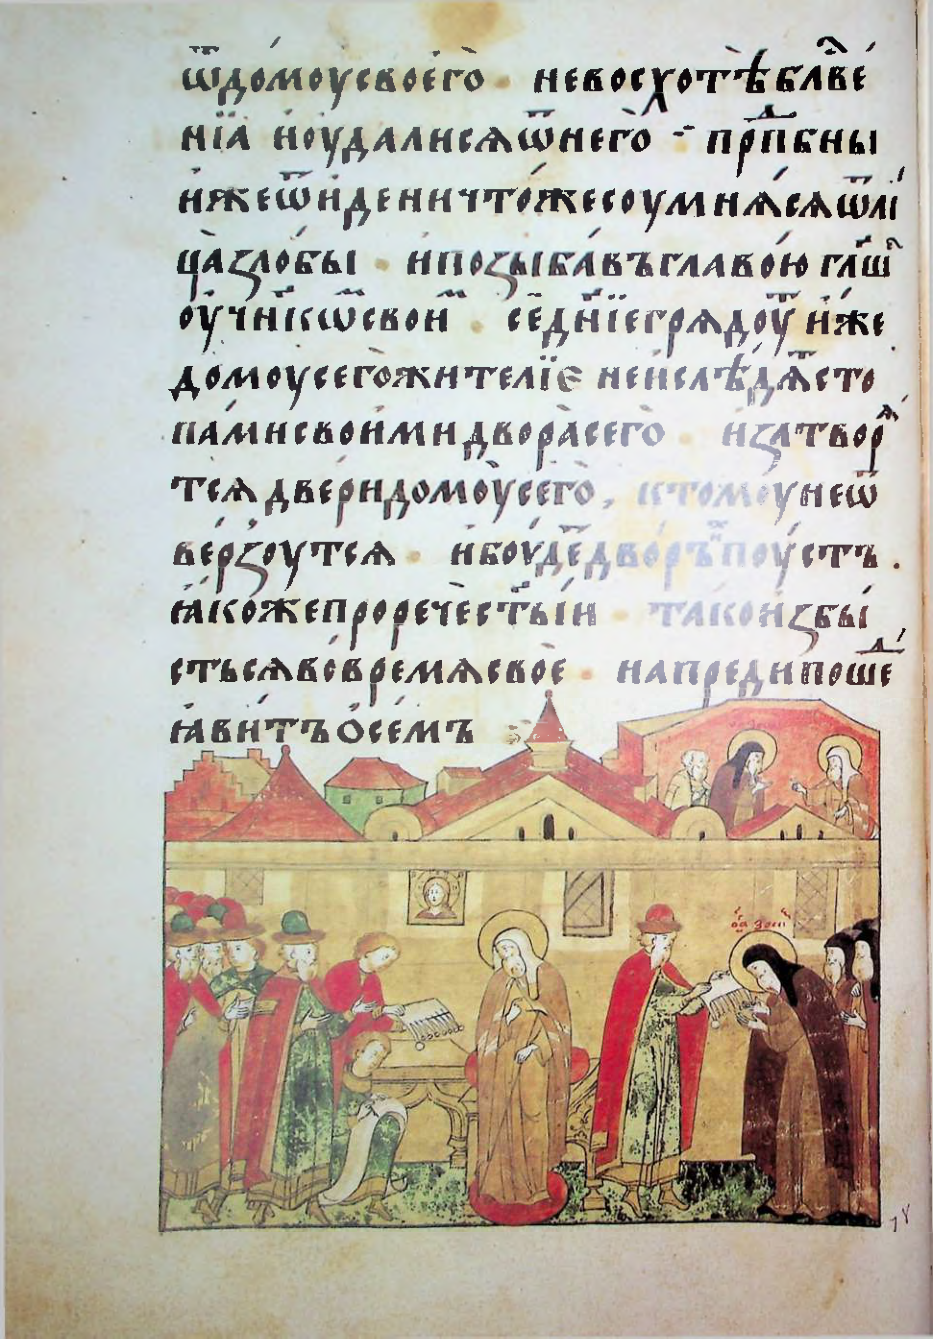 ѿдомоусвоего̀ · невосхотѣ благⷭ҇ве
нїа и҆оудалисѧѿнего̀ · прпⷣбны
и҆жеѿи҆дениⷱтожесоумнѧ́сѧѿлі
ца̀ꙁло́бы · и҆поꙁыба́въглаво́ю гл҃ѧ
оу҆чн҃ікѡⷨсвоиⷨ · се́дн҃їегрѧдоуⷮ и҆́же
домоусего̀жителїє неи҆слѣ́дѧⷮсто
па́мисвои҆мидвора̀сего̀ · и҆ꙁатворѧⷮ
тсѧдве́ридомоу̀сего̀, ктомоунеѿ
ве́рꙁоутсѧ · и҆боу́деⷮдво́ръи҆хпоу́стъ .
ꙗ҆́кожепроречѐст҃ы́и · та́кои҆ꙁбы́
стьсѧво́времѧсвоѐ · напредипоше́ⷣ
ꙗ҆ви́тъѻ҆се́мъ